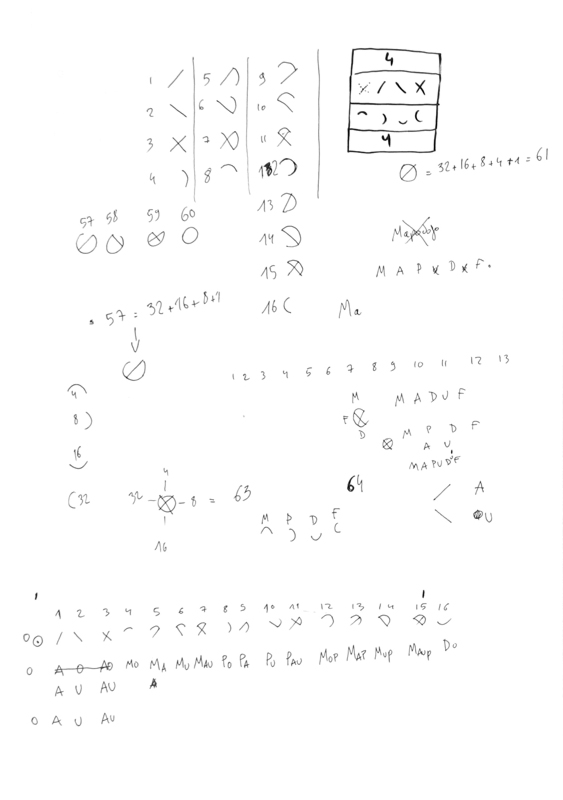 4
4
1 5 9
2 6 10
3 7 11
4 8
13
14
15
16
57 58 59 60
= 32+16+8+4+1 = 61
M A P D F.
57 = 32+16+8+1
Ma
1 2 3 4 5 6 7 8 9 10 11 12 13
4
8
16
32
4
32 8 = 63
16
M
F
D
M A D U F
M P D F
A U
MAPUD'F
64
A
U
M P D F
1 2 3 4 5 6 7 8 9 10 11 12 13 14 15 16
0
0 A O AO MO MA MU MAU PO PA PU PAU MOP MAP MUP MAUP DO
A U AU A
0 A U AU